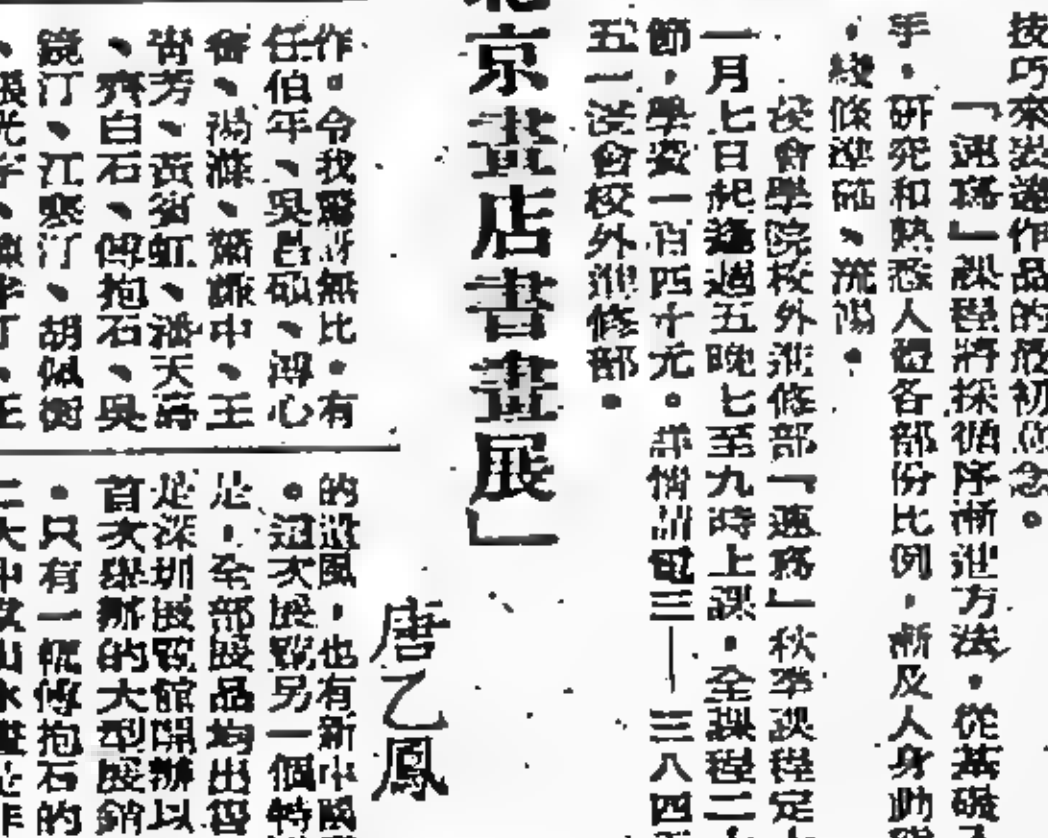 技巧來出這作品的最初意念。
「速寫」課程將採循序漸進方法，從基礎
手，研究和熟悉人體各部份比例，漸及人身動
，綫條準確、流暢。
該會學院校外進修部「速寫」秋季課程定
一月七日起逢週五晚七至九時上課，全課程二
節，學費一百四十元。詳情請電三—三八四
五一浸會校外進修部。
北京畫店書畫展」
唐乙鳳
作。令我驚訝無比，有
任伯年、吳昌碩、溥心
畬、湯滌、蕭謙中、王
青芳、黃賓虹、潘天壽
、齊白石、傅抱石、吳
鏡汀、江寒汀、胡佩衡
、張光宇、
的造風，也有新中國
。這次展覽另一個特
是，全部展品均出售
是深圳展覽館開辦以
首次舉辦的大型展銷
。只有一幀傅抱石的
二大中 山水畫是作